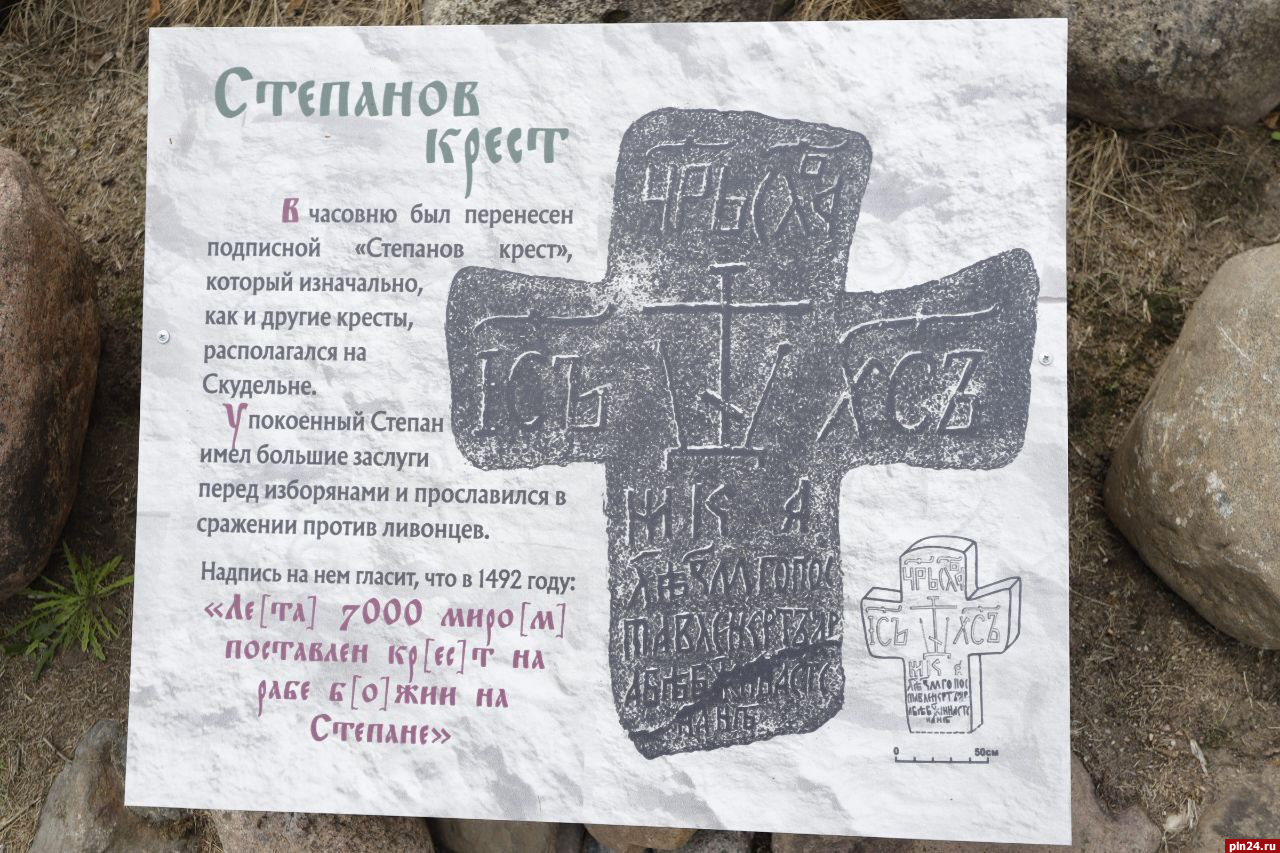 Степанов
крест
В часовню был перенесен
подписной «Степанов крест»,
который изначально,
как и другие кресты,
располагался на
Скудельне.
Упокоенный Степан
имел большие заслуги
перед изборянами и прославился в
сражении против ливонцев.
Надпись на нем гласит, что в 1492 году:
«Ле[та] 7000 миро[м]
поставлен кр[ес]т на
рабе б[о]жии на
Степане»
ІСЪ ХСЪ
0 50см
pln24.ru